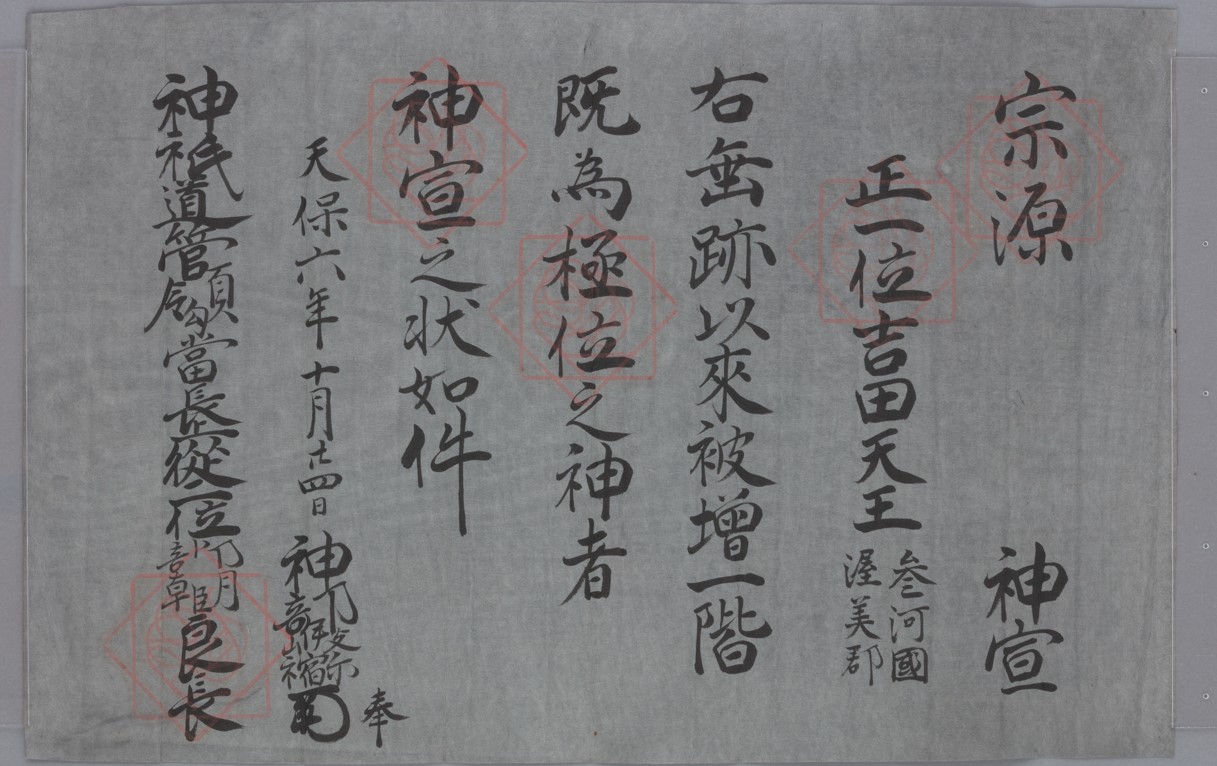 宗源 神宣
正一位吉田天王 叄河國
渥美郡
右垂跡以來被增一階
既為極位之神者
神宣之状如件
天保六年十月廿四日 神 奉
神祇道管領勾當長從二位卜部朝臣良長